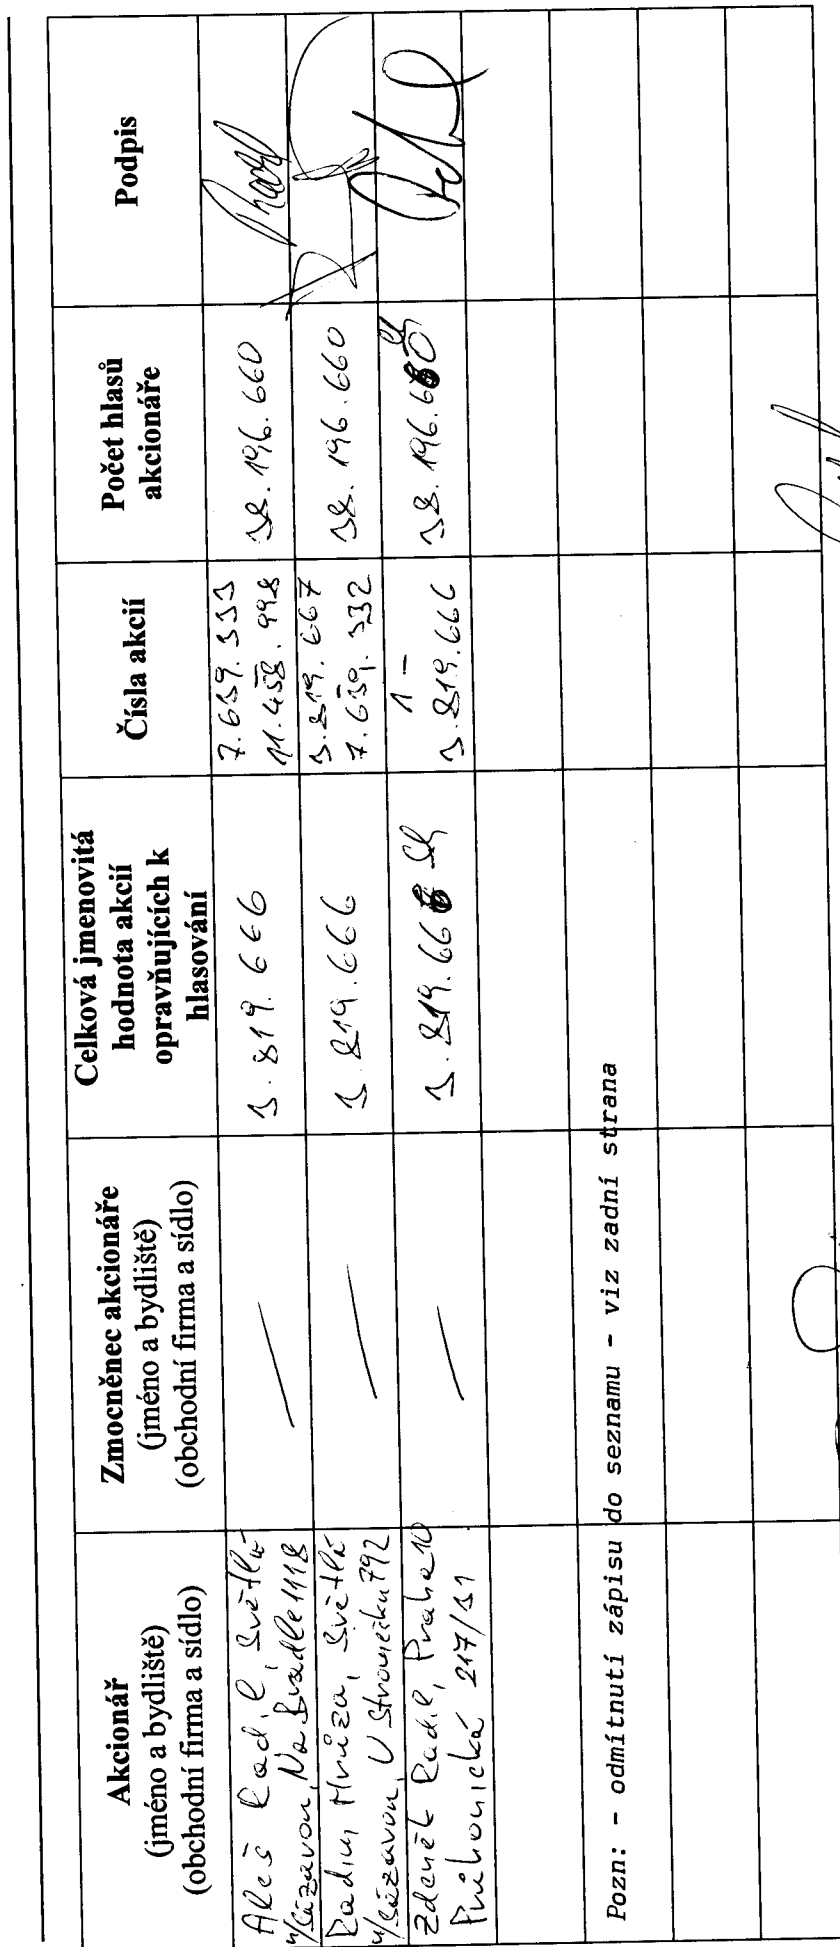 Akcionář
(jméno a bydliště)
(obchodní firma a sídlo)
Zmocněnec akcionáře
(jméno a bydliště)
(obchodní firma a sídlo)
Celková jmenovitá
hodnota akcií
opravňujících k
hlasování
Čísla akcií
Počet hlasů
akcionáře
Podpis
Aleš Radil, Světlá
n/Sázavou, Na Bradle 1118
—
3.819.666
7.639.333
11.458.998
38.196.660
Radim Mrůza, Světlá
n/Sázavou, U Stromečku 792
—
3.819.666
3.819.667
7.639.332
38.196.660
Zdeněk Radil, Praha 10
Průhonická 217/31
—
3.819.666
1 –
3.819.666
38.196.660
Pozn: - odmítnutí zápisu do seznamu - viz zadní strana